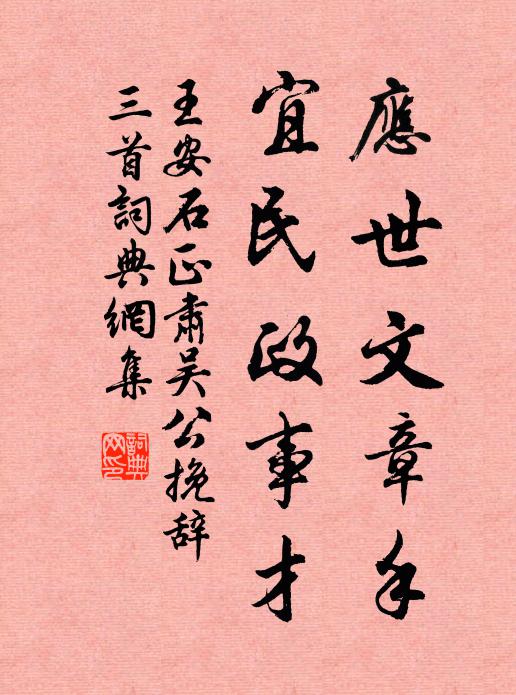 應世文章手
宜民政事才
王安石正肅吴公挽辞
三首詞典網集
詞典网印